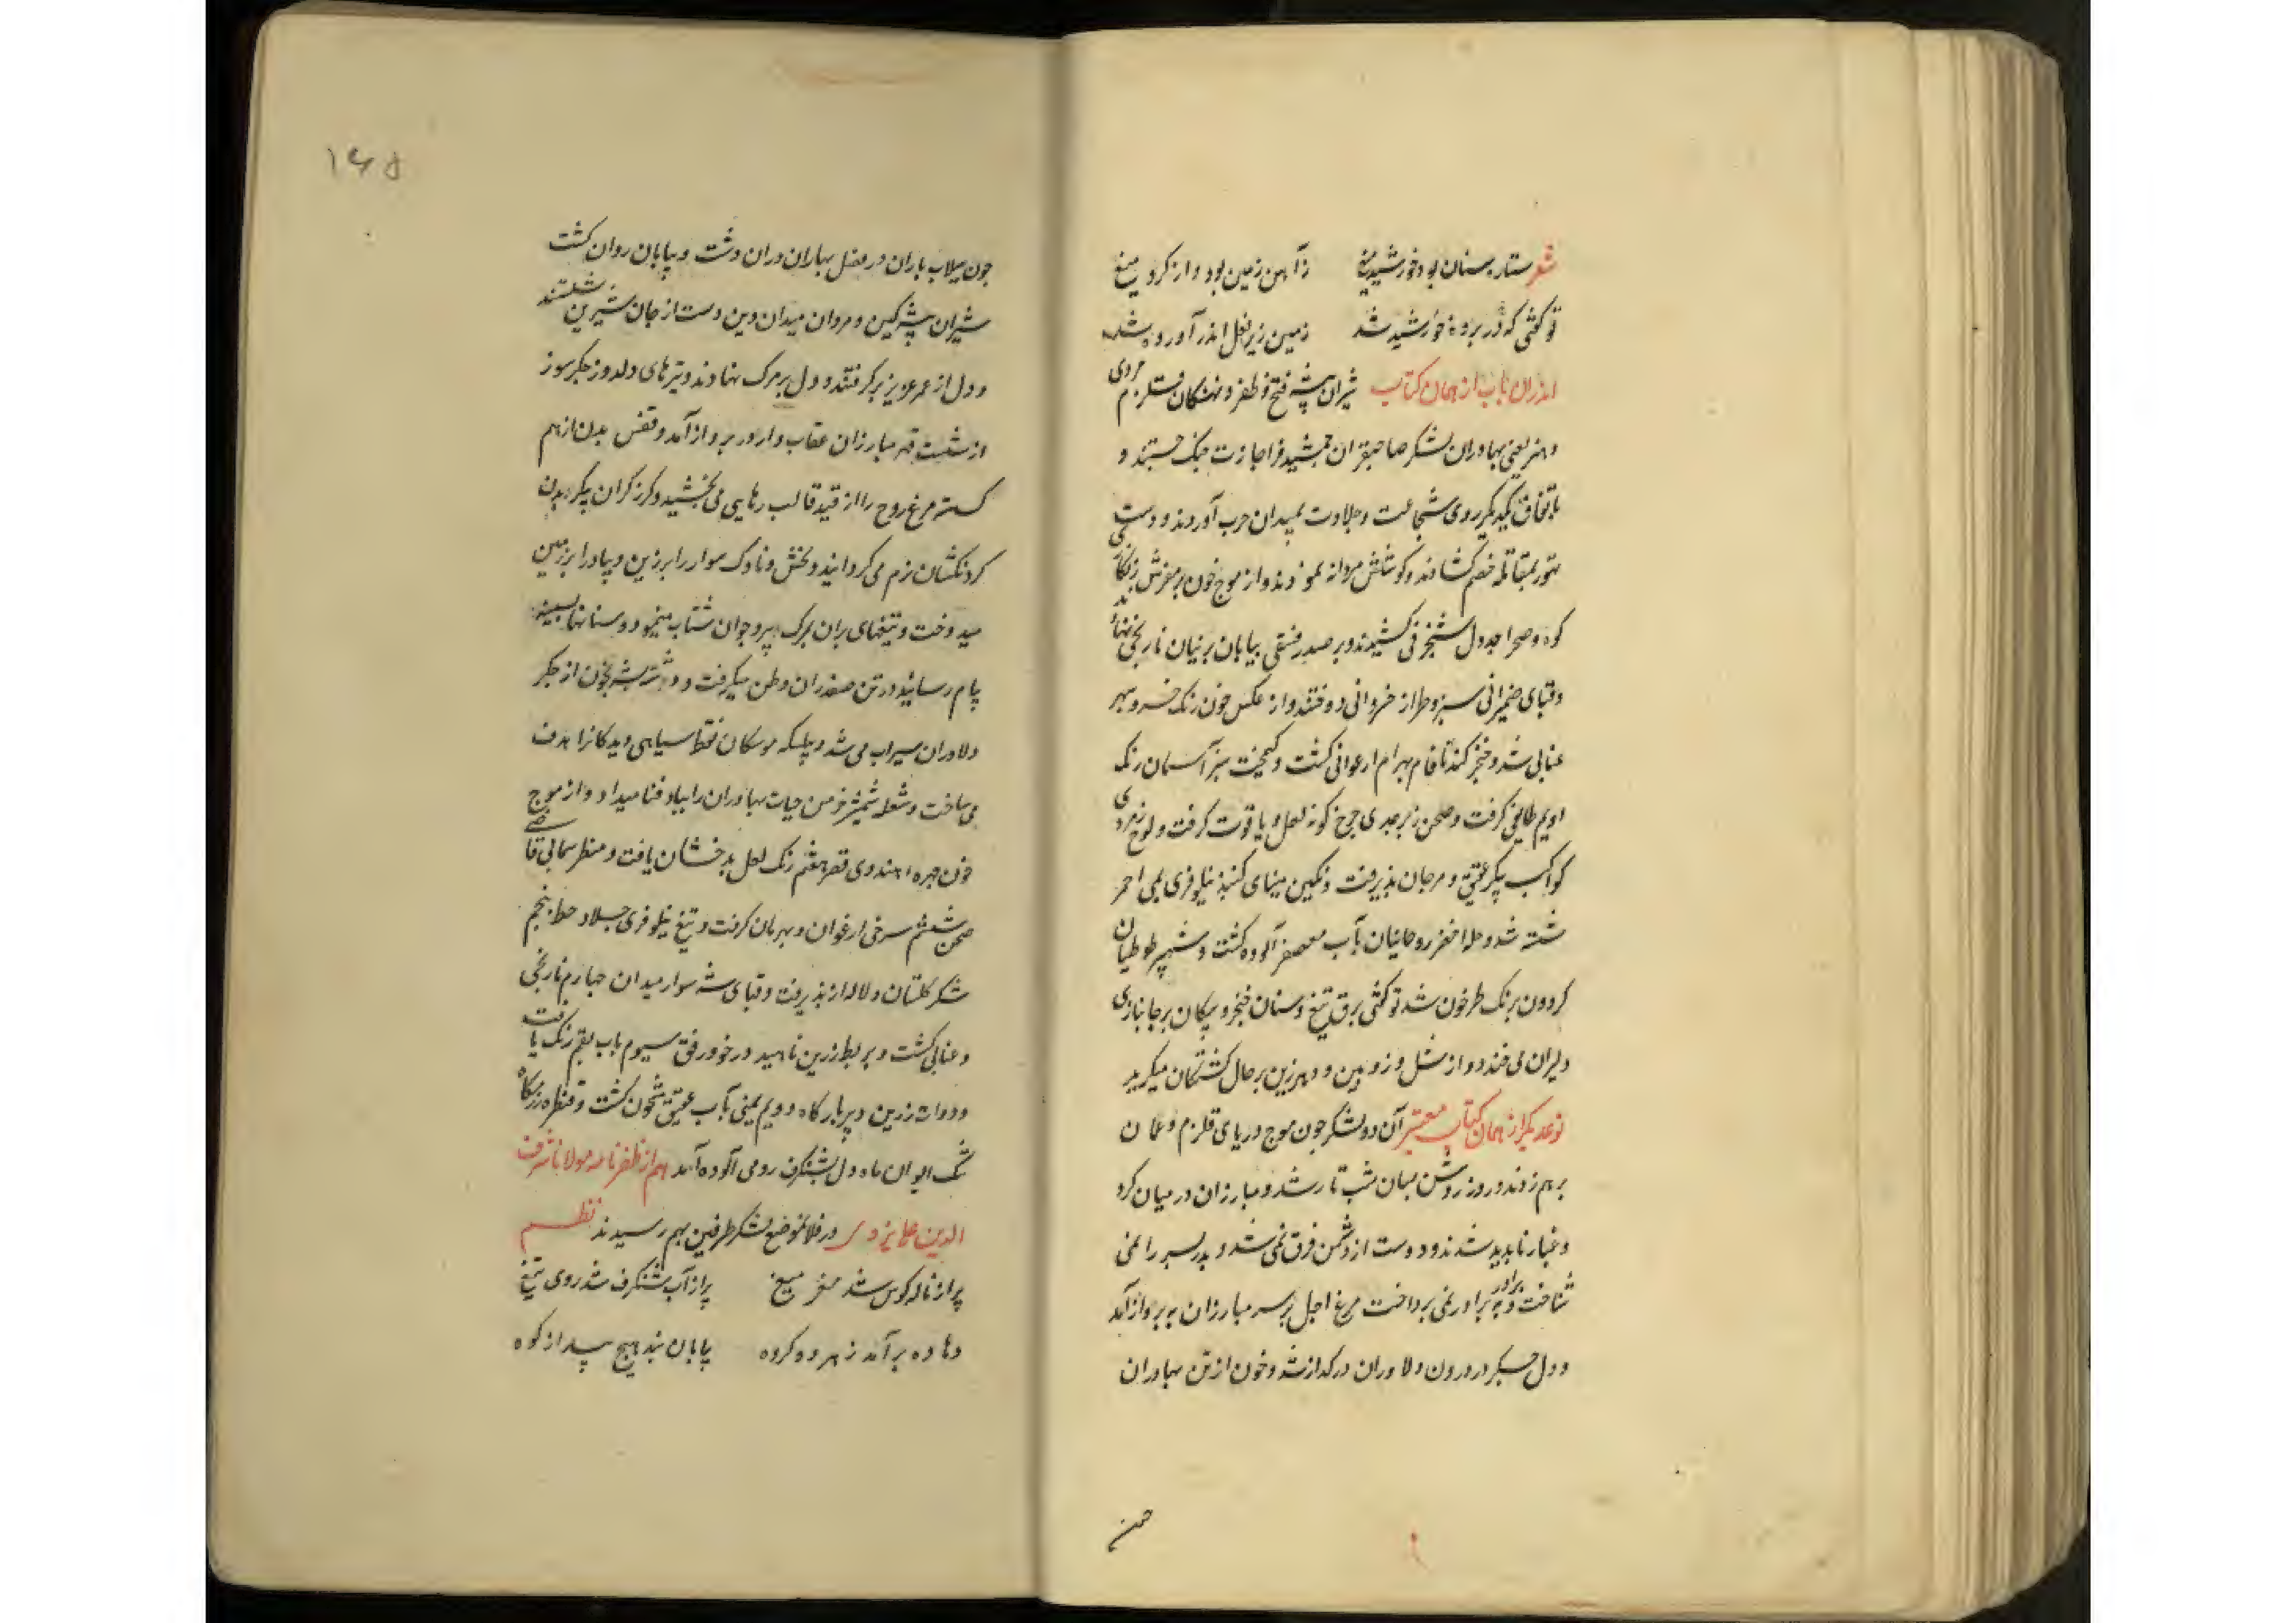 شعر ستاره سنان بود خورشید تیغ زآهن زمین بود وز کرد میغ
تو کفتی که در پرده خورشید شد زمین زیر نعل اندر آورده شد
اندران باب از همان کتاب شیران بیشه فتح و ظفر و نهنکان قلزم مردی
و هنر یعنی بهادران لشکر صاحبقران جمشید فر اجازت جنک جستند و
باتفاق یکدیکر روی شجاعت و جلاوت بمیدان حرب آوردند و دست
تهور بمقاتله خصم کشادند و کوشش مردانه نمودند و از موج خون بر مفرش زنکاری
کوه و صحرا جدول شنجرفی کشیدند و بر صدر فستقی بیابان پرنیان نارنجی نهادند
و قبای ضمیرانی سبزه طراز خسروانی دوختند و از عکس خون رنک خسرو سپهر
عنابی شد و خنجر کندنا فام بهرام ارغوانی کشت و کیمخت سبز آسمان رنک
ادیم طایفی کرفت و صحن زبرجدی چرخ کونه لعل و یاقوت کرفت و لوح زمردی
کواکب پیکر عقیق و مرجان پذیرفت و نکین مینای کنبذ نیلوفری بمی احمر
شسته شد و حله اخضر روحانیان بآب معصفر آلوده کشت و شهپر طوطیان
کردون برنک طرخون شد تو کفتی برق تیغ و سنان خنجر و پیکان بر جانبازی
دلیران می خندد و از شل و زوبین و برحال کشتکان میکرید
نوعدیکر از همان کتاب معتبر آن دو لشکر جون موج دریای قلزم و عمان
برهم زدند و روز روشن بسان شب تار شد و مبارزان در میان کرد
و غبار ناپدید شدند و دوست از دشمن فرق نمی شد و پدر پسر را نمی
شناخت و برادر به برادر نمی پرداخت مرغ اجل بر سر مبارزان به پرواز آمد
و دل و جکر در درون دلاوران در کداز شد و خون از تن بهادران
جون
١٤٥
جون سیلاب باران در فصل بهاران دران دشت و بیابان روان کشت
شیران بیشه کین و مردان میدان دین دست از جان شیرین شستند
و دل از عمر عزیز برکرفتند و دل بر مرک نهادند و تیرهای دلدوز جکرسوز
از شست قهر مبارزان عقاب وار در پرواز آمد و قفس بدن از هم
کسته مرغ روح را از قید قالب رهایی می بخشید و کرز کران پیکر بدن
کردنکشان نرم می کردانید و خشت و ناوک سوار را بر زین و پیاده را بر زمین
میدوخت و تیغهای بران بمرک پیر و جوان شتاب مینمود و سنانها بسینه
پیام رسانید و در تن صفدران وطن میکرفت و دشنه تشنه بخون از جکر
دلاوران سیراب می شد و بیلک موشکاف نقطه سیاهی دیدکانرا هدف
می ساخت و شعله شمشیر خرمن حیات بهادران را بباد فنا میداد و از موج
خون چهره هندوی قصر هفتم رنک لعل بدخشان یافت و منظر سمابی قاضی
صحن ششم سرخی ارغوان و بهرمان کرفت و تیغ نیلوفری جلاد خطه پنجم
شکر کلستان و لاله زار پذیرفت و قبای شه سوار میدان چهارم نارنجی
و عنابی کشت و بربط زرین ناهید در خور رفق سیوم بآب بقم رنک یافت
و دوات زرین دبیر بارکاه دویم یمنی بآب عقیق مشحون کشت و قنطره زرنکار
تنک ایوان ماه اول بشنکرف رومی آلوده آمد هم از ظفرنامه مولانا شرف
الدین علی یزدی در فلانموضع لشکر طرفین بهم رسیدند نظم
پر از ناله کوس شد مغز میغ پر از آب شنکرف شد روی تیغ
دهاده برآمد ز هر دو کروه بیابان نبد هیچ پیدا ز کوه